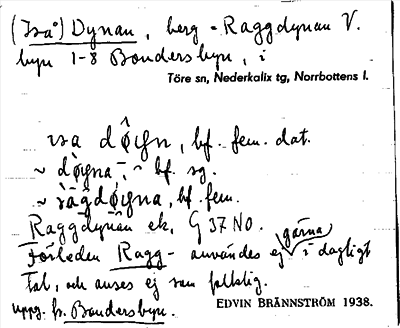 (Iså) Dynan, berg = Raggdynan V.
byn 1-8 Bondersbyn, i
Töre sn, Nederkalix tg, Norrbottens l.
dôyn, bf. fem. dat.
~ døyna, ~ bf. sg.
~ ràgdøyna, bf. fem.
Raggdynan ek. G 37 NO.
gärna
Förleden Ragg- användes ej i dagligt
tal, och anses ej som folklig.
uppg. fr. Bondersbyn.
EDVIN BRÄNNSTRÖM 1938.